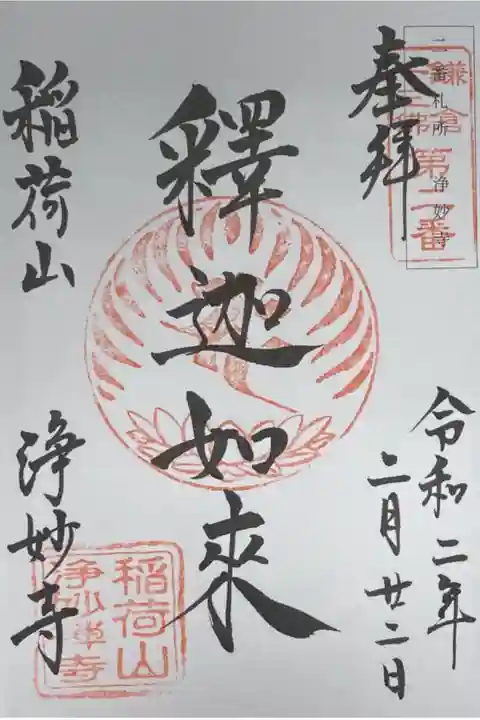 二番札所 浄妙寺
鎌倉
十三佛
第二番
奉拝
令和二年
二月廿二日
釋迦如來
稲荷山
浄妙寺
稲荷山
浄妙寺